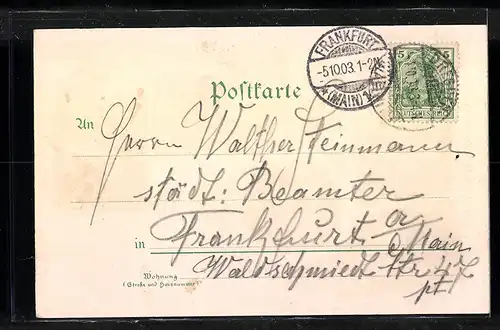 FRANKFURT
-5.10.03. 1-2N.
* (MAIN) 1.
5 5
DEUTSCHES REICH
Postkarte
An Herrn Walther Feinmann
städt: Beamter
in Frankfurt a/
Main
Wohnung Waldschmiedt Str 47
(Straße und Hausnummer)
pt